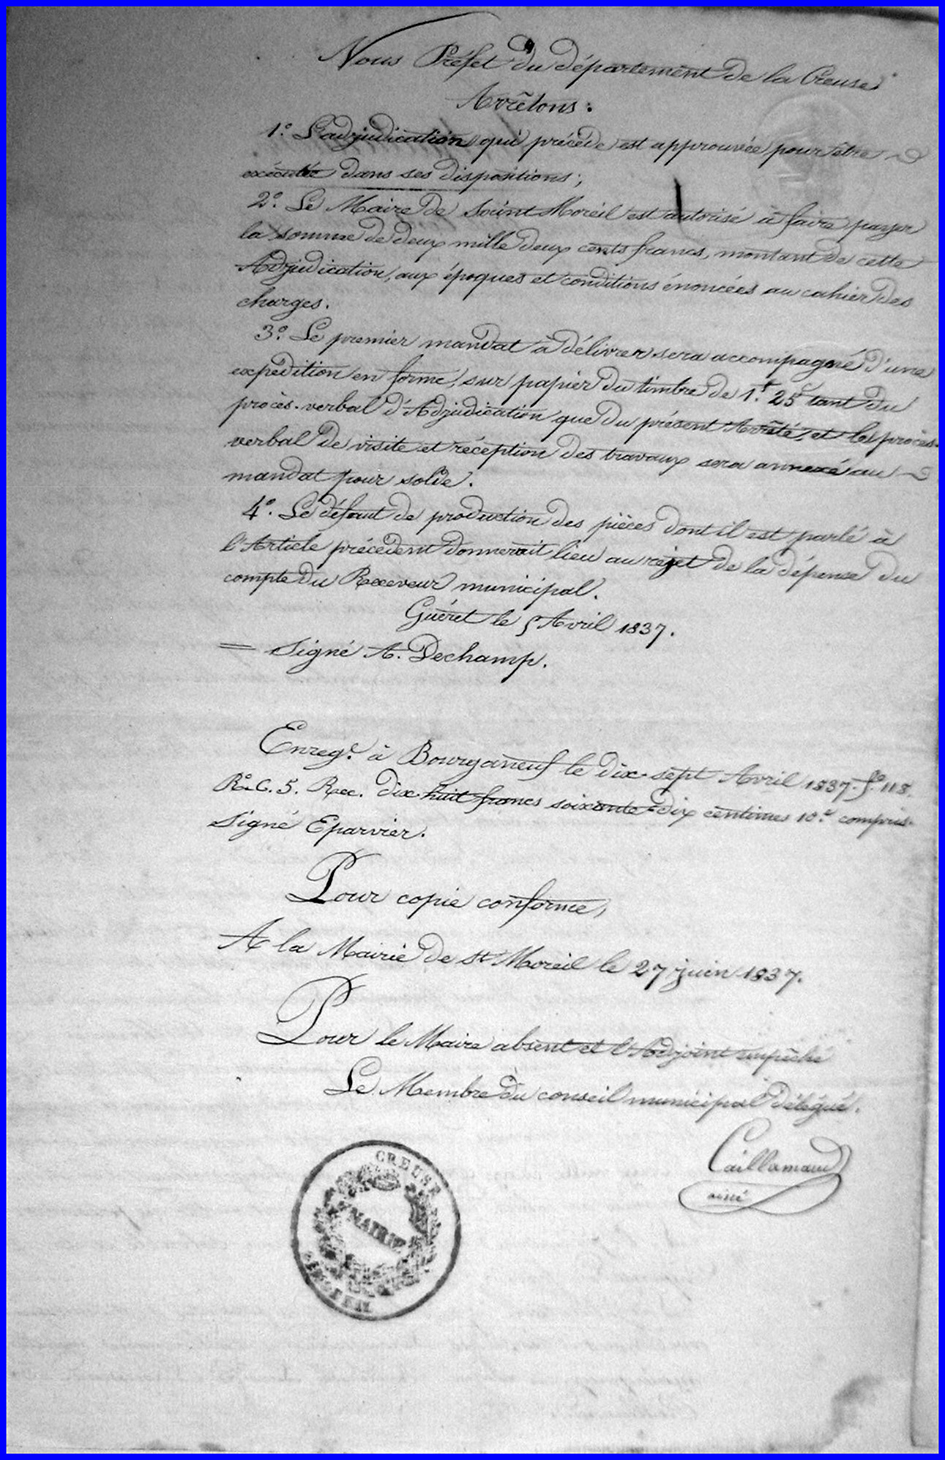 Nous Préfet du département de la Creuse
Arrêtons :
1.° L'adjudication qui précède est approuvée pour être
exécutée dans ses dispositions ;
2.° Le Maire de Saint Moreil est autorisé à faire payer
la somme de deux mille deux cents francs, montant de cette
Adjudication, aux époques et conditions énoncées au cahier des
charges.
3.° Le premier mandat à délivrer sera accompagné d'une
expédition en forme, sur papier du timbre de 1.f 25c tant du
procès-verbal d'Adjudication que du présent Arrêté, et les procès-
verbal de visite et réception des travaux sera annexé au
mandat pour solde.
4.° Le défaut de production des pièces dont il est parlé à
l'Article précédent donnerait lieu au rejet de la dépense du
compte du Receveur municipal.
Guéret le 5 Avril 1837.
= Signé A. Dechamp.
Enreg.é à Bourganeuf le dix-sept Avril 1837. f.o 118.
R.o C. 5. Rec. dix huit francs soixante-dix centimes 10.e compris.
Signé Eparvier.
Pour copie conforme,
A la Mairie de St Moreil le 27 juin 1837.
Pour le Maire absent et l'Adjoint empêché
Le Membre du conseil municipal délégué.
Caillamaud
ainé
CREUSE
MAIRIE